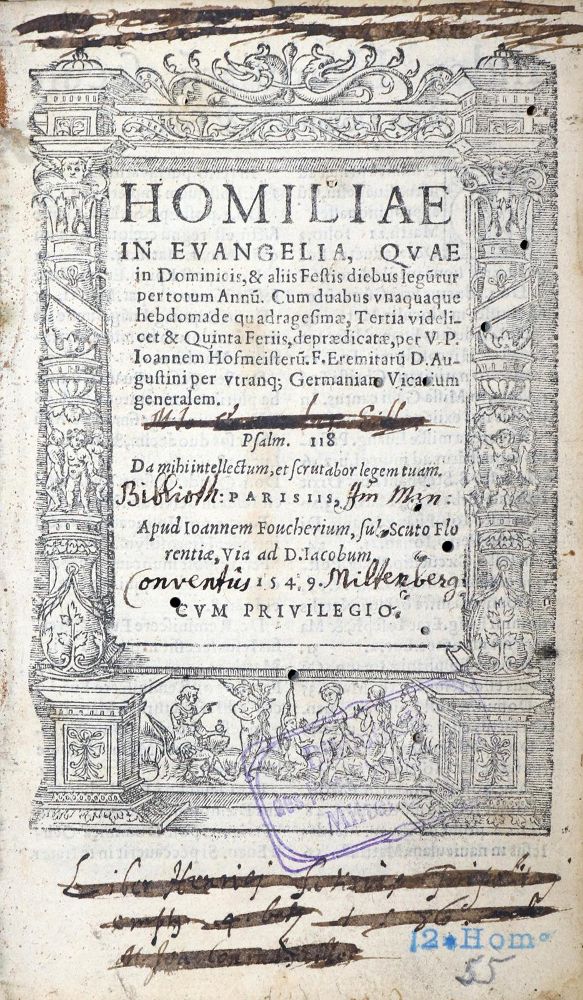 HOMILIAE
IN EVANGELIA, QVAE
in Dominicis, & aliis Festis diebus legūtur
per totum Annū. Cum duabus vnaquaque
hebdomade quadragesimæ, Tertia videli-
cet & Quinta Feriis, deprædicatæ, per V. P.
Ioannem Hofmeisterū. F. Eremitarū D. Au-
gustini per vtranq; Germaniam Vicarium
generalem.
Psalm. 118
Da mihi intellectum, et scrutabor legem tuam.
Biblioth: PARISIIS, Min:
Apud Ioannem Foucherium, sub Scuto Flo
rentiæ, Via ad D. Iacobum,
Conventûs 1549. Miltenberg:
CVM PRIVILEGIO.
Liber Henrici
12* Hom.
55